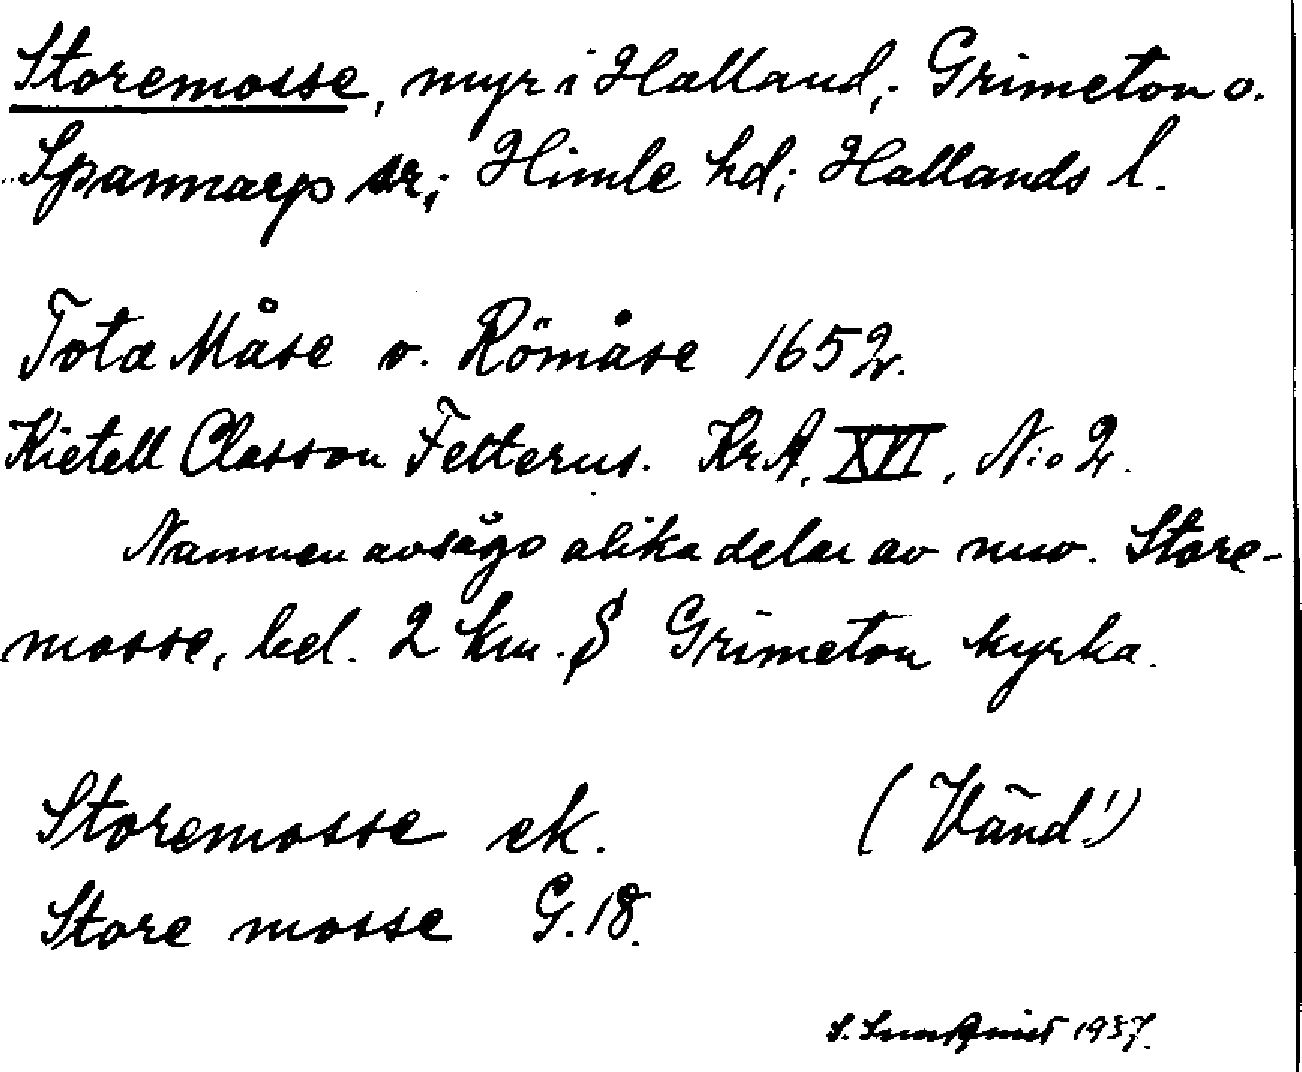 Storemosse, myr i Halland; Grimeton o.
Spannarp sr; Himle hd; Hallands l.
Tota Måse o. Römåse 1652.
Kietell Classon Felterus. KrA, XVI, N:o 2.
Namnen avsågo olika delar av nuv. Store-
mosse, bel. 2 km. S Grimeton kyrka.
Storemosse ek. (Vänd!)
Store mosse G. 18.
S. 1937.